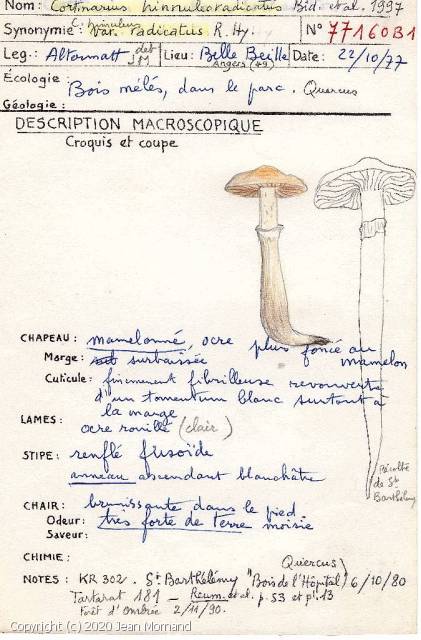 Nom: Cortinarius hinnuleoradicatus Bid. et al. 1997
C. hinnuleus
Synonymie: var. radicatus R. Hy.
N° 77160B1
Leg.: Altonmatt det JM Lieu: Belle Beille Date: 22/10/77
Angers (49)
Écologie: Bois mêlés, dans le parc. Quercus
Géologie:
DESCRIPTION MACROSCOPIQUE
Croquis et coupe
CHAPEAU: mamelonné, ocre plus foncé au mamelon
Marge: surbaissée
Cuticule: finement fibrilleuse recouverte
d'un tomentum blanc surtout à
la marge
LAMES: ocre rouillé (clair)
STIPE: renflé fusoïde
anneau ascendant blanchâtre
Récolte
de St
Barthélémy
CHAIR: brunissante dans le pied
Odeur: très forte de terre moisie
Saveur:
CHIMIE:
Quercus
NOTES: KR 302. St Barthélémy "Bois de l'Hôpital) 6/10/80
Tartarat 181 - Reum. et al. p. 53 et pl. 13
Forêt d'Ombrée 2/11/90.
Copyright (c) 2020 Jean Mornand